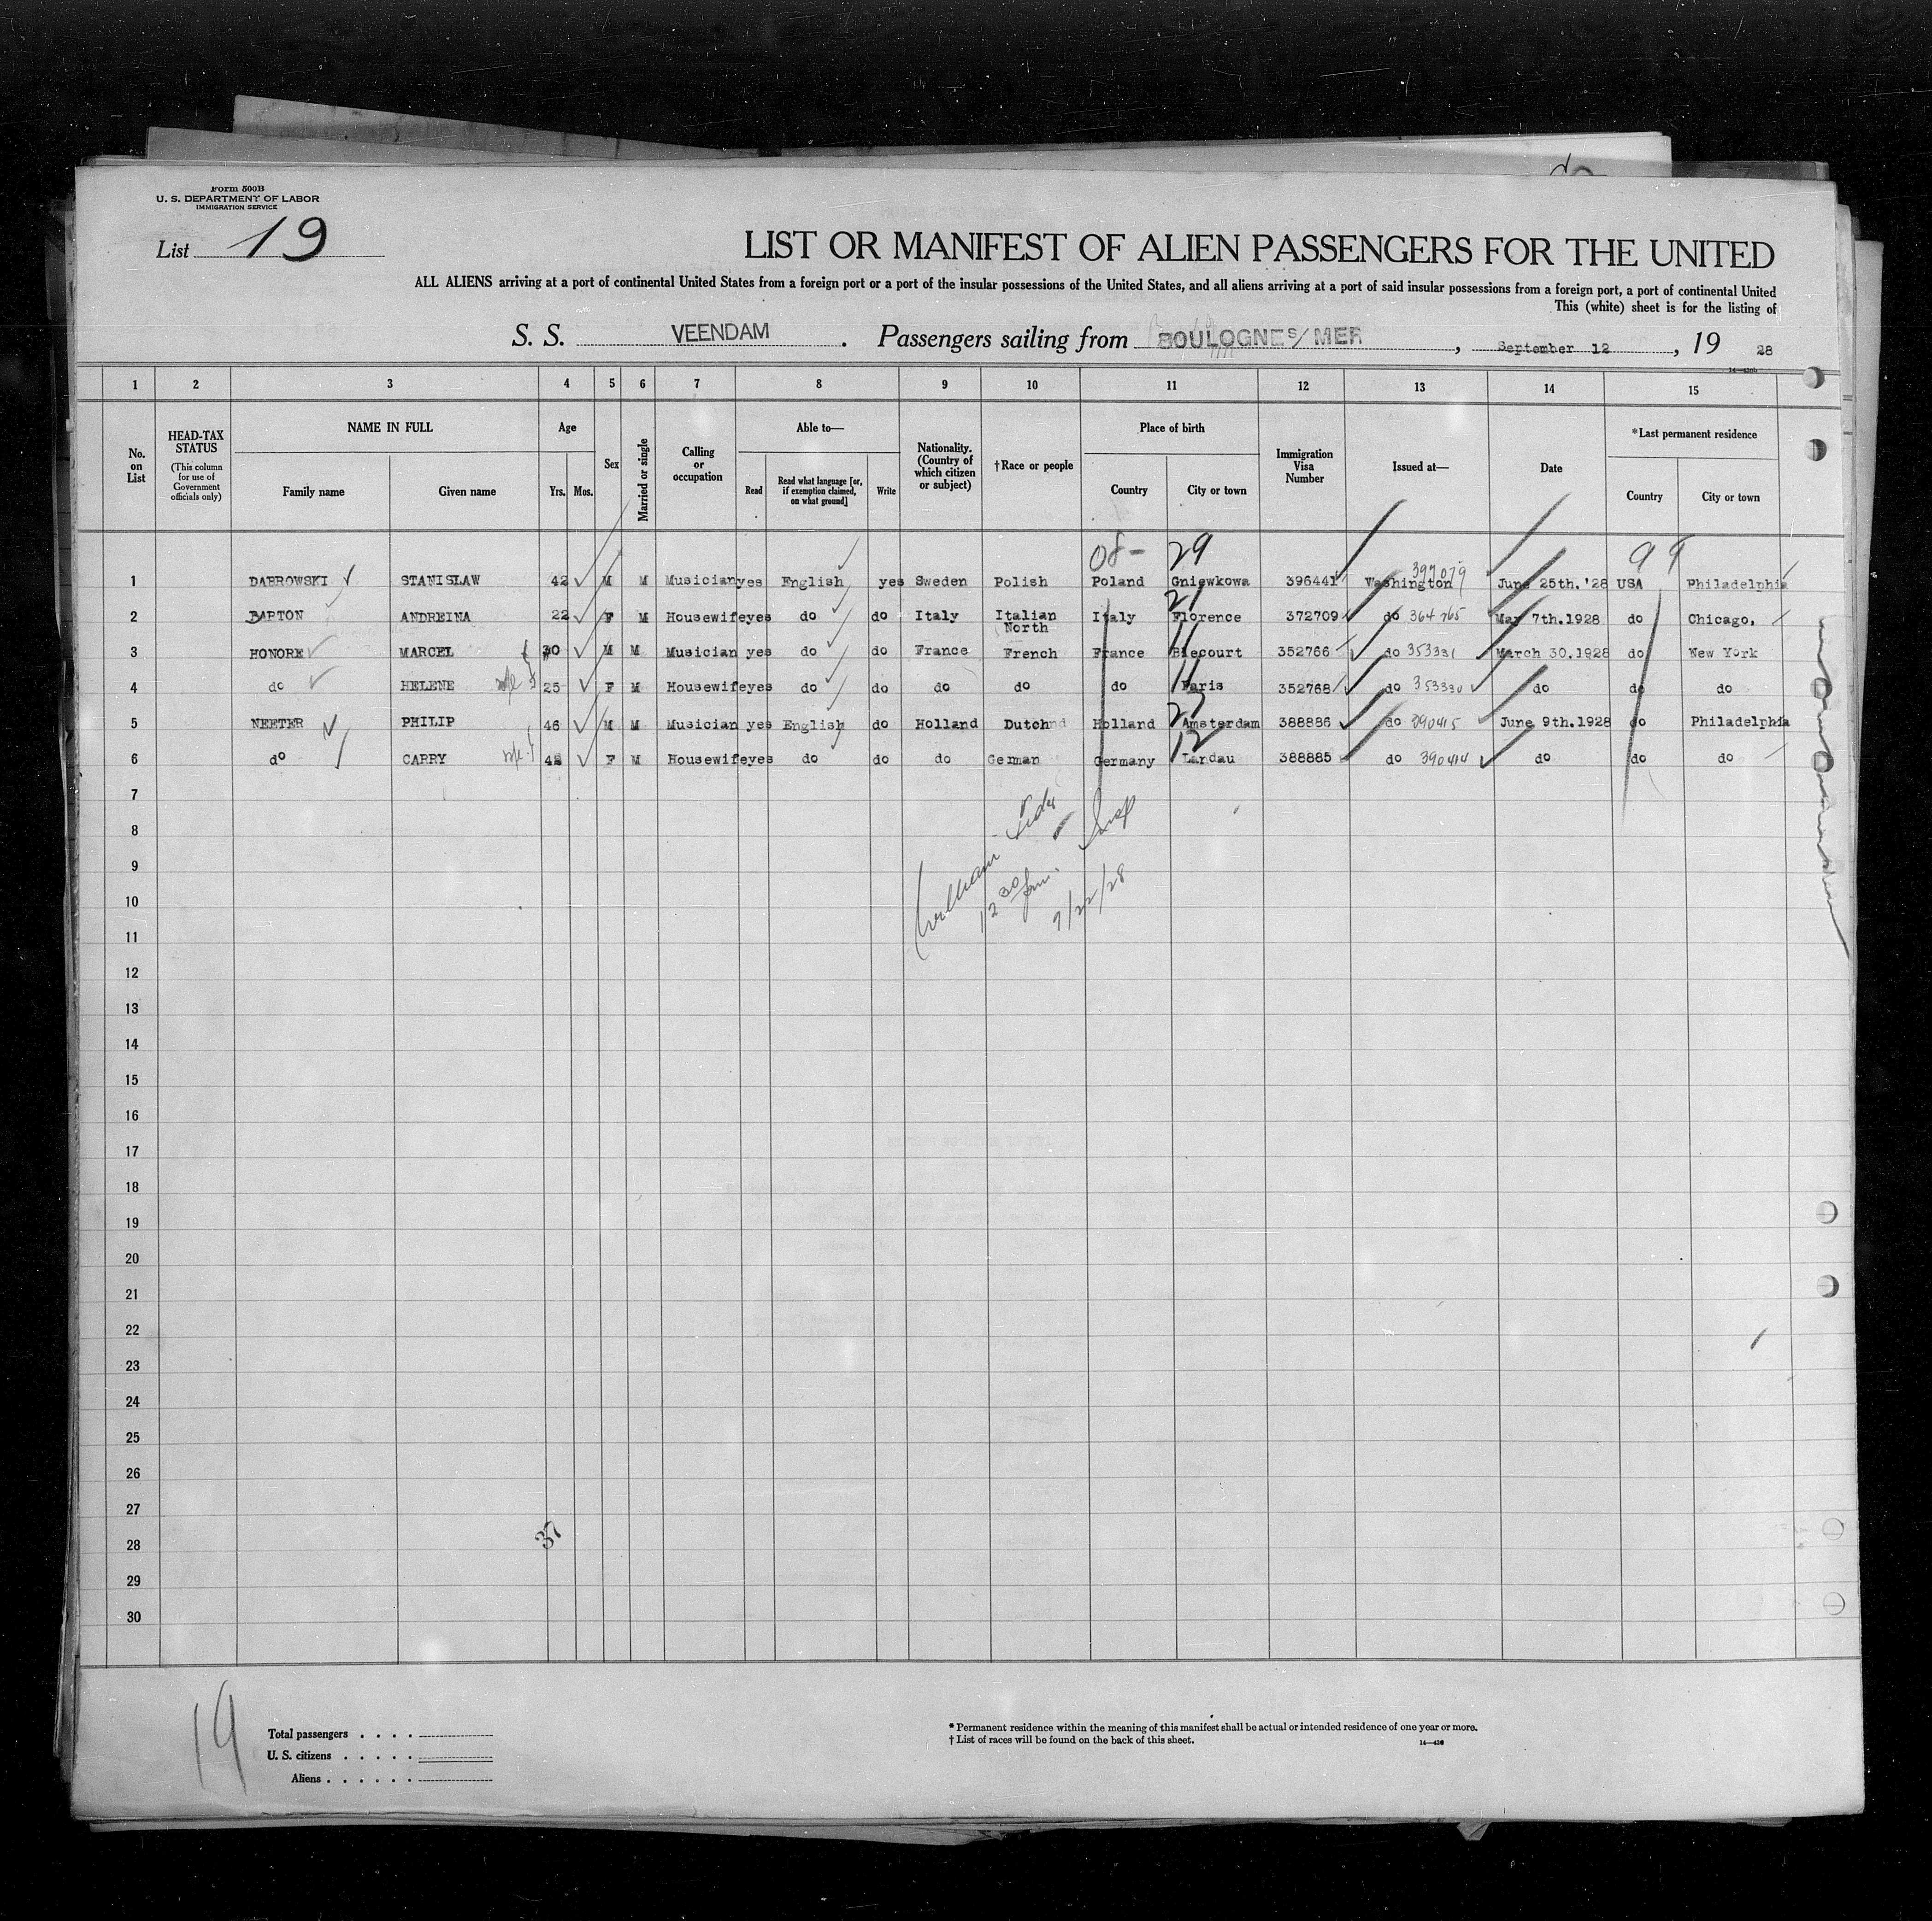 Form 500B
U. S. DEPARTMENT OF LABOR
IMMIGRATION SERVICE
List 19
LIST OR MANIFEST OF ALIEN PASSENGERS FOR THE UNITED
ALL ALIENS arriving at a port of continental United States from a foreign port or a port of the insular possessions of the United States, and all aliens arriving at a port of said insular possessions from a foreign port, a port of continental United
This (white) sheet is for the listing of
S. S. VEENDAM . Passengers sailing from BOULOGNE S/MER , September 12 , 19 28
1 2 3 4 5 6 7 8 9 10 11 12 13 14 15
No. on List
HEAD-TAX STATUS (This column for use of Government officials only)
NAME IN FULL
Family name Given name
Age
Yrs. Mos.
Sex
Married or single
Calling or occupation
Able to—
Read Read what language [or, if exemption claimed, on what ground] Write
Nationality. (Country of which citizen or subject)
†Race or people
Place of birth
Country City or town
Immigration Visa Number
Issued at—
Date
*Last permanent residence
Country City or town
08- 29 99
1 DABROWSKI STANISLAW 42 M M Musician yes English yes Sweden Polish Poland Gniewkowa 396441 Washington 397079 June 25th.'28 USA Philadelphia
2 BARTON ANDREINA 22 F M Housewife yes do do Italy Italian North Italy 21 Florence 372709 do 364765 May 7th.1928 do Chicago,
3 HONORE MARCEL 30 M M Musician yes do do France French France 11 Blecourt 352766 do 353331 March 30.1928 do New York
4 do HELENE 25 F M Housewife yes do do do do do 11 Paris 352768 do 353330 do do do
5 NEETER PHILIP 46 M M Musician yes English do Holland Dutch Holland 23 Amsterdam 388886 do 390415 June 9th.1928 do Philadelphia
6 do CARRY 42 F M Housewife yes do do do German Germany 12 Landau 388885 do 390414 do do do
7
8
9
10
11
12
13
14
15
16
17
18
19
20
21
22
23
24
25
26
27
28
29
30
William
Insp
12 30 pm.
9/22/28
37
19
Total passengers . . . .
U. S. citizens . . . . .
Aliens . . . . . .
* Permanent residence within the meaning of this manifest shall be actual or intended residence of one year or more.
† List of races will be found on the back of this sheet.
14—430